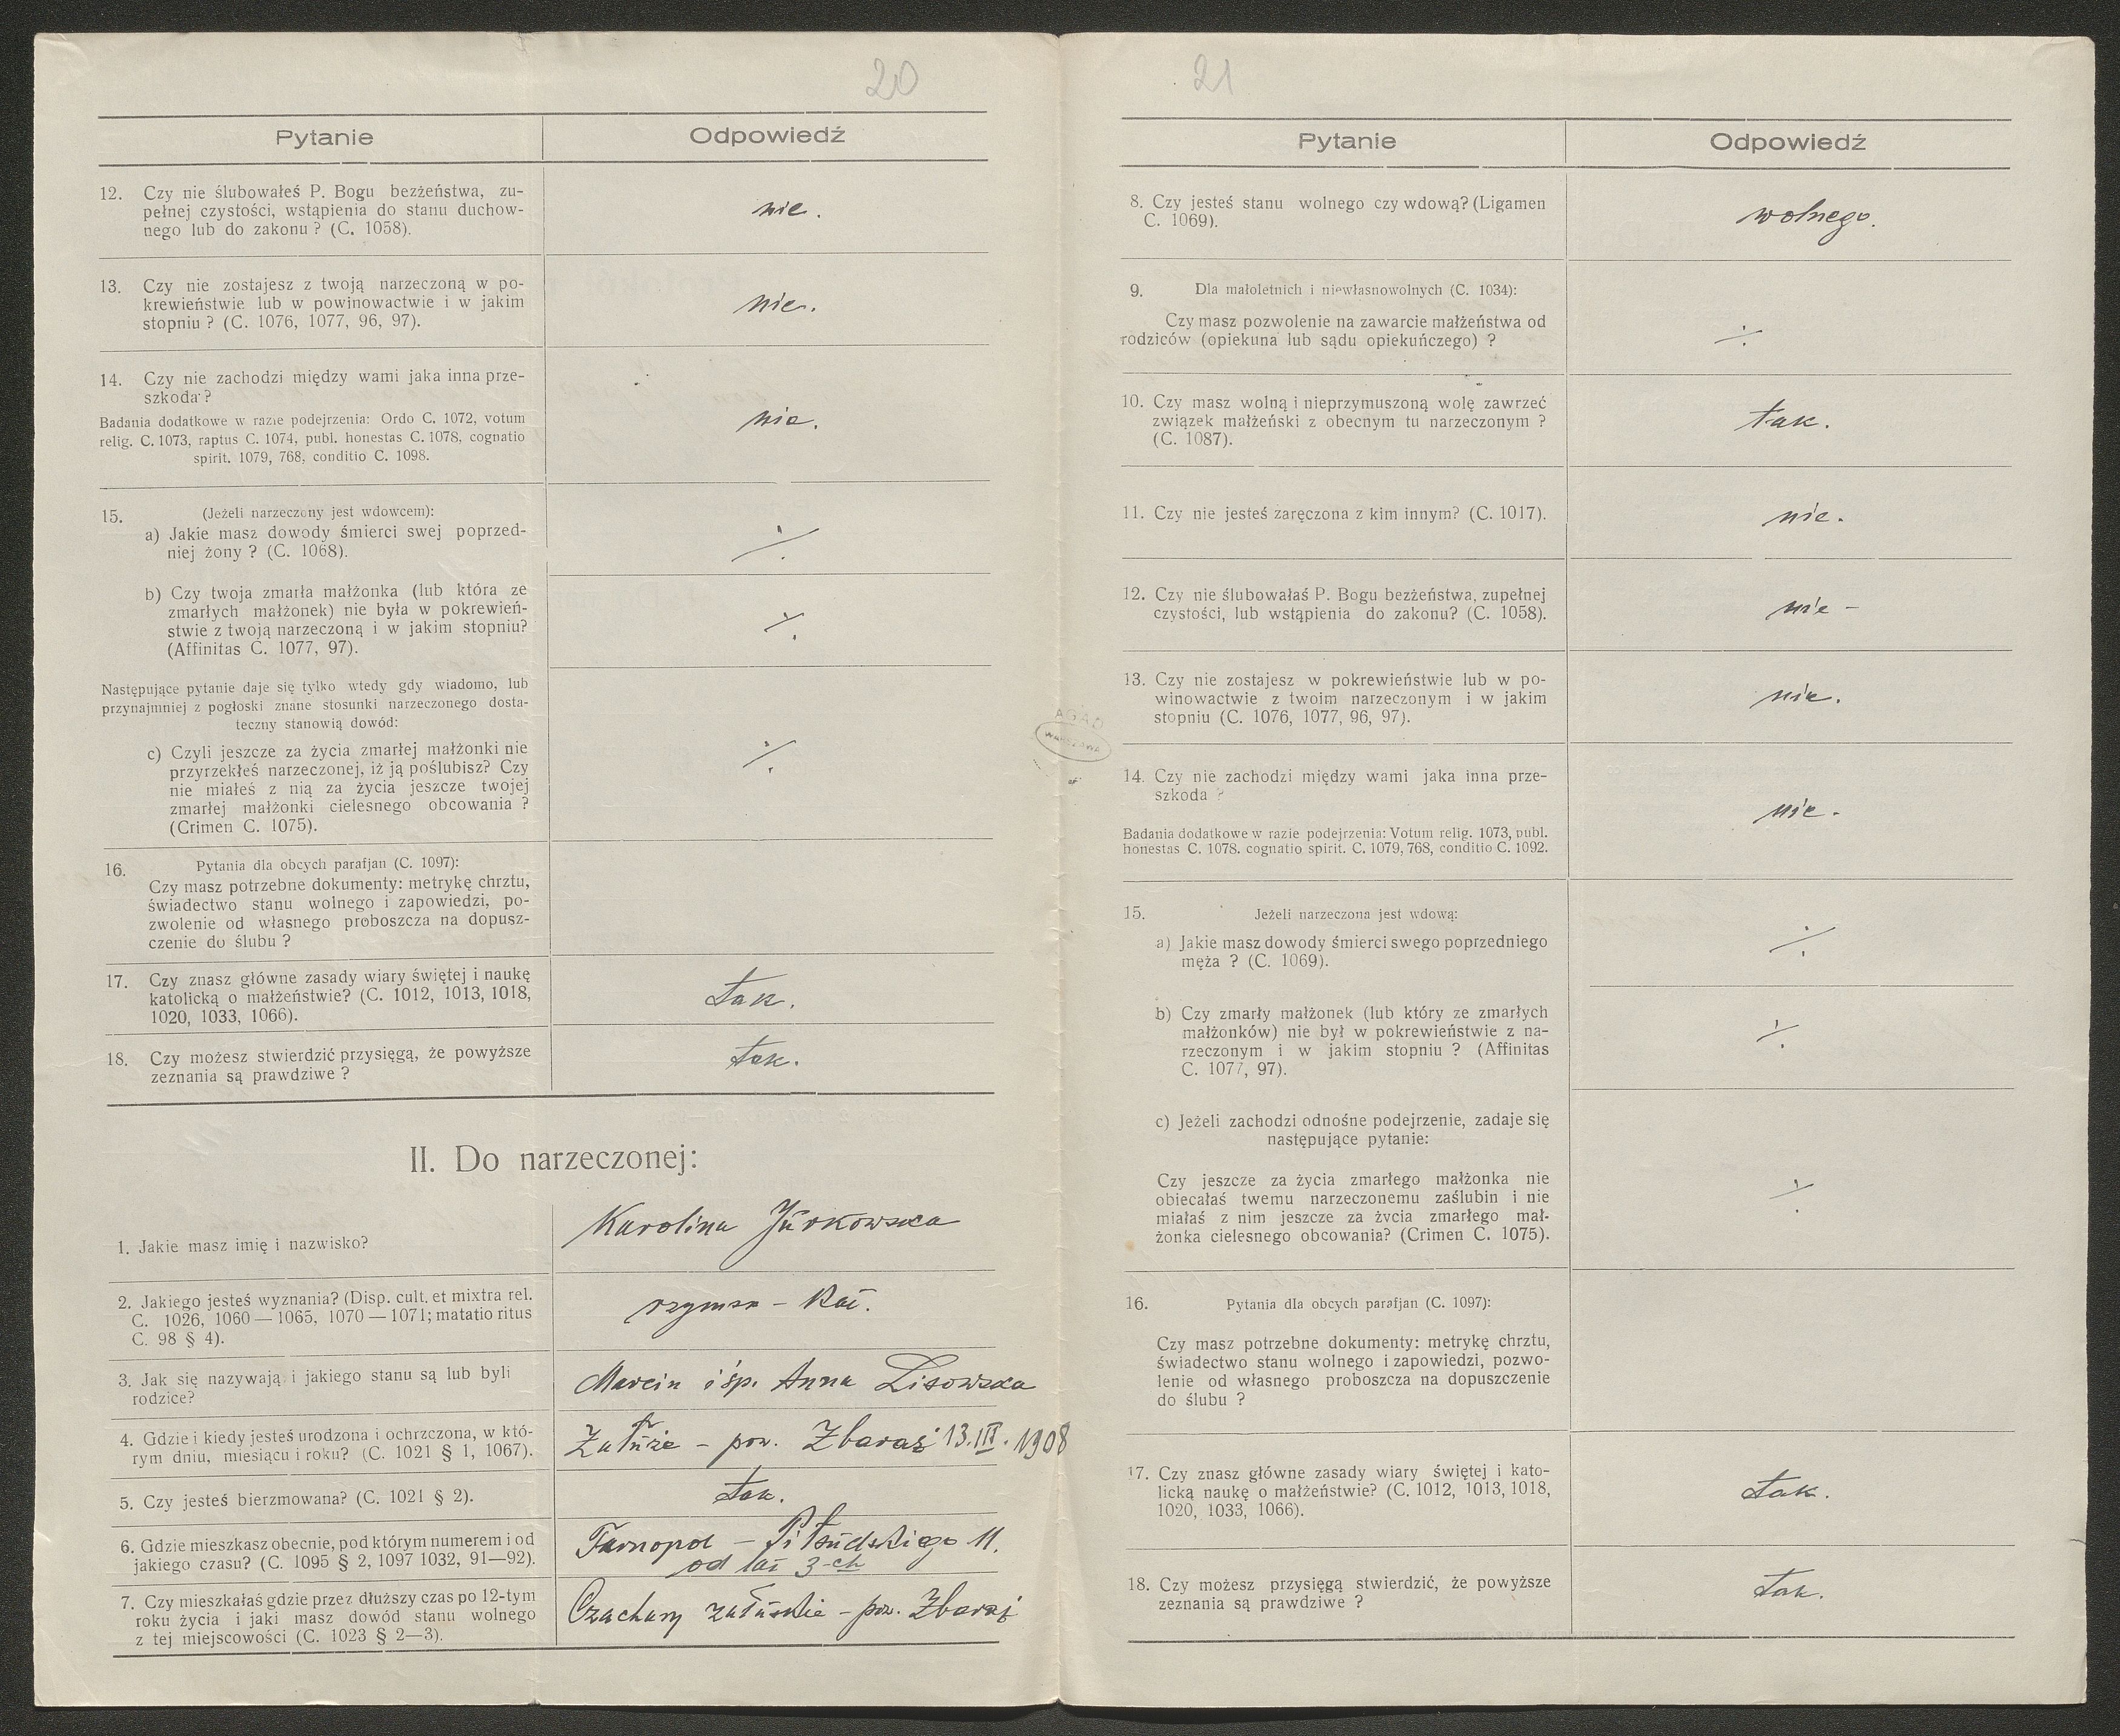 20
Pytanie
Odpowiedź
12. Czy nie ślubowałeś P. Bogu bezżeństwa, zu-
pełnej czystości, wstąpienia do stanu duchow-
nego lub do zakonu ? (C. 1058).
nie.
13. Czy nie zostajesz z twoją narzeczoną w po-
krewieństwie lub w powinowactwie i w jakim
stopniu ? (C. 1076, 1077, 96, 97).
nie.
14. Czy nie zachodzi między wami jaka inna prze-
szkoda ?
Badania dodatkowe w razie podejrzenia: Ordo C. 1072, votum
relig. C. 1073, raptus C. 1074, publ. honestas C. 1078, cognatio
spirit. 1079, 768, conditio C. 1098.
nie.
15. (Jeżeli narzeczony jest wdowcem):
a) Jakie masz dowody śmierci swej poprzed-
niej żony ? (C. 1068).
⁒
b) Czy twoja zmarła małżonka (lub która ze
zmarłych małżonek) nie była w pokrewień-
stwie z twoją narzeczoną i w jakim stopniu?
(Affinitas C. 1077, 97).
⁒
Następujące pytanie daje się tylko wtedy gdy wiadomo, lub
przynajmniej z pogłoski znane stosunki narzeczonego dosta-
teczny stanowią dowód:
c) Czyli jeszcze za życia zmarłej małżonki nie
przyrzekłeś narzeczonej, iż ją poślubisz? Czy
nie miałeś z nią za życia jeszcze twojej
zmarłej małżonki cielesnego obcowania ?
(Crimen C. 1075).
⁒
16. Pytania dla obcych parafjan (C. 1097):
Czy masz potrzebne dokumenty: metrykę chrztu,
świadectwo stanu wolnego i zapowiedzi, po-
zwolenie od własnego proboszcza na dopusz-
czenie do ślubu ?
17. Czy znasz główne zasady wiary świętej i naukę
katolicką o małżeństwie? (C. 1012, 1013, 1018,
1020, 1033, 1066).
tak.
18. Czy możesz stwierdzić przysięgą, że powyższe
zeznania są prawdziwe ?
tak.
II. Do narzeczonej:
1. Jakie masz imię i nazwisko?
Karolina Jurkowska
2. Jakiego jesteś wyznania? (Disp. cult. et mixtra rel.
C. 1026, 1060 — 1065, 1070 — 1071; matatio ritus
C. 98 § 4).
rzymsk - kat.
3. Jak się nazywają i jakiego stanu są lub byli
rodzice?
Marcin i śp. Anna Lisowska
4. Gdzie i kiedy jesteś urodzona i ochrzczona, w któ-
rym dniu, miesiącu i roku? (C. 1021 § 1, 1067).
Załuże - pow. Zbaraż 13.III.1908
5. Czy jesteś bierzmowana? (C. 1021 § 2).
tak.
6. Gdzie mieszkasz obecnie, pod którym numerem i od
jakiego czasu? (C. 1095 § 2, 1097 1032, 91—92).
Tarnopol - Piłsudskiego 11.
od lat 3-ch
7. Czy mieszkałaś gdzie przez dłuższy czas po 12-tym
roku życia i jaki masz dowód stanu wolnego
z tej miejscowości (C. 1023 § 2—3).
Czachary załuskie - pow. Zbaraż
AGAD
WARSZAWA
21
Pytanie
Odpowiedź
8. Czy jesteś stanu wolnego czy wdową? (Ligamen
C. 1069).
wolnego.
9. Dla małoletnich i niewłasnowolnych (C. 1034):
Czy masz pozwolenie na zawarcie małżeństwa od
rodziców (opiekuna lub sądu opiekuńczego) ?
⁒
10. Czy masz wolną i nieprzymuszoną wolę zawrzeć
związek małżeński z obecnym tu narzeczonym ?
(C. 1087).
tak.
11. Czy nie jesteś zaręczona z kim innym? (C. 1017).
nie.
12. Czy nie ślubowałaś P. Bogu bezżeństwa, zupełnej
czystości, lub wstąpienia do zakonu? (C. 1058).
nie -
13. Czy nie zostajesz w pokrewieństwie lub w po-
winowactwie z twoim narzeczonym i w jakim
stopniu (C. 1076, 1077, 96, 97).
nie.
14. Czy nie zachodzi między wami jaka inna prze-
szkoda ?
Badania dodatkowe w razie podejrzenia: Votum relig. 1073, publ.
honestas C. 1078. cognatio spirit. C. 1079, 768, conditio C. 1092.
nie.
15. Jeżeli narzeczona jest wdową:
a) Jakie masz dowody śmierci swego poprzedniego
męża ? (C. 1069).
⁒
b) Czy zmarły małżonek (lub który ze zmarłych
małżonków) nie był w pokrewieństwie z na-
rzeczonym i w jakim stopniu ? (Affinitas
C. 1077, 97).
⁒
c) Jeżeli zachodzi odnośne podejrzenie, zadaje się
następujące pytanie:
Czy jeszcze za życia zmarłego małżonka nie
obiecałaś twemu narzeczonemu zaślubin i nie
miałaś z nim jeszcze za życia zmarłego mał-
żonka cielesnego obcowania? (Crimen C. 1075).
⁒
16. Pytania dla obcych parafjan (C. 1097):
Czy masz potrzebne dokumenty: metrykę chrztu,
świadectwo stanu wolnego i zapowiedzi, pozwo-
lenie od własnego proboszcza na dopuszczenie
do ślubu ?
17. Czy znasz główne zasady wiary świętej i kato-
licką naukę o małżeństwie? (C. 1012, 1013, 1018,
1020, 1033, 1066).
tak.
18. Czy możesz przysięgą stwierdzić, że powyższe
zeznania są prawdziwe ?
tak.